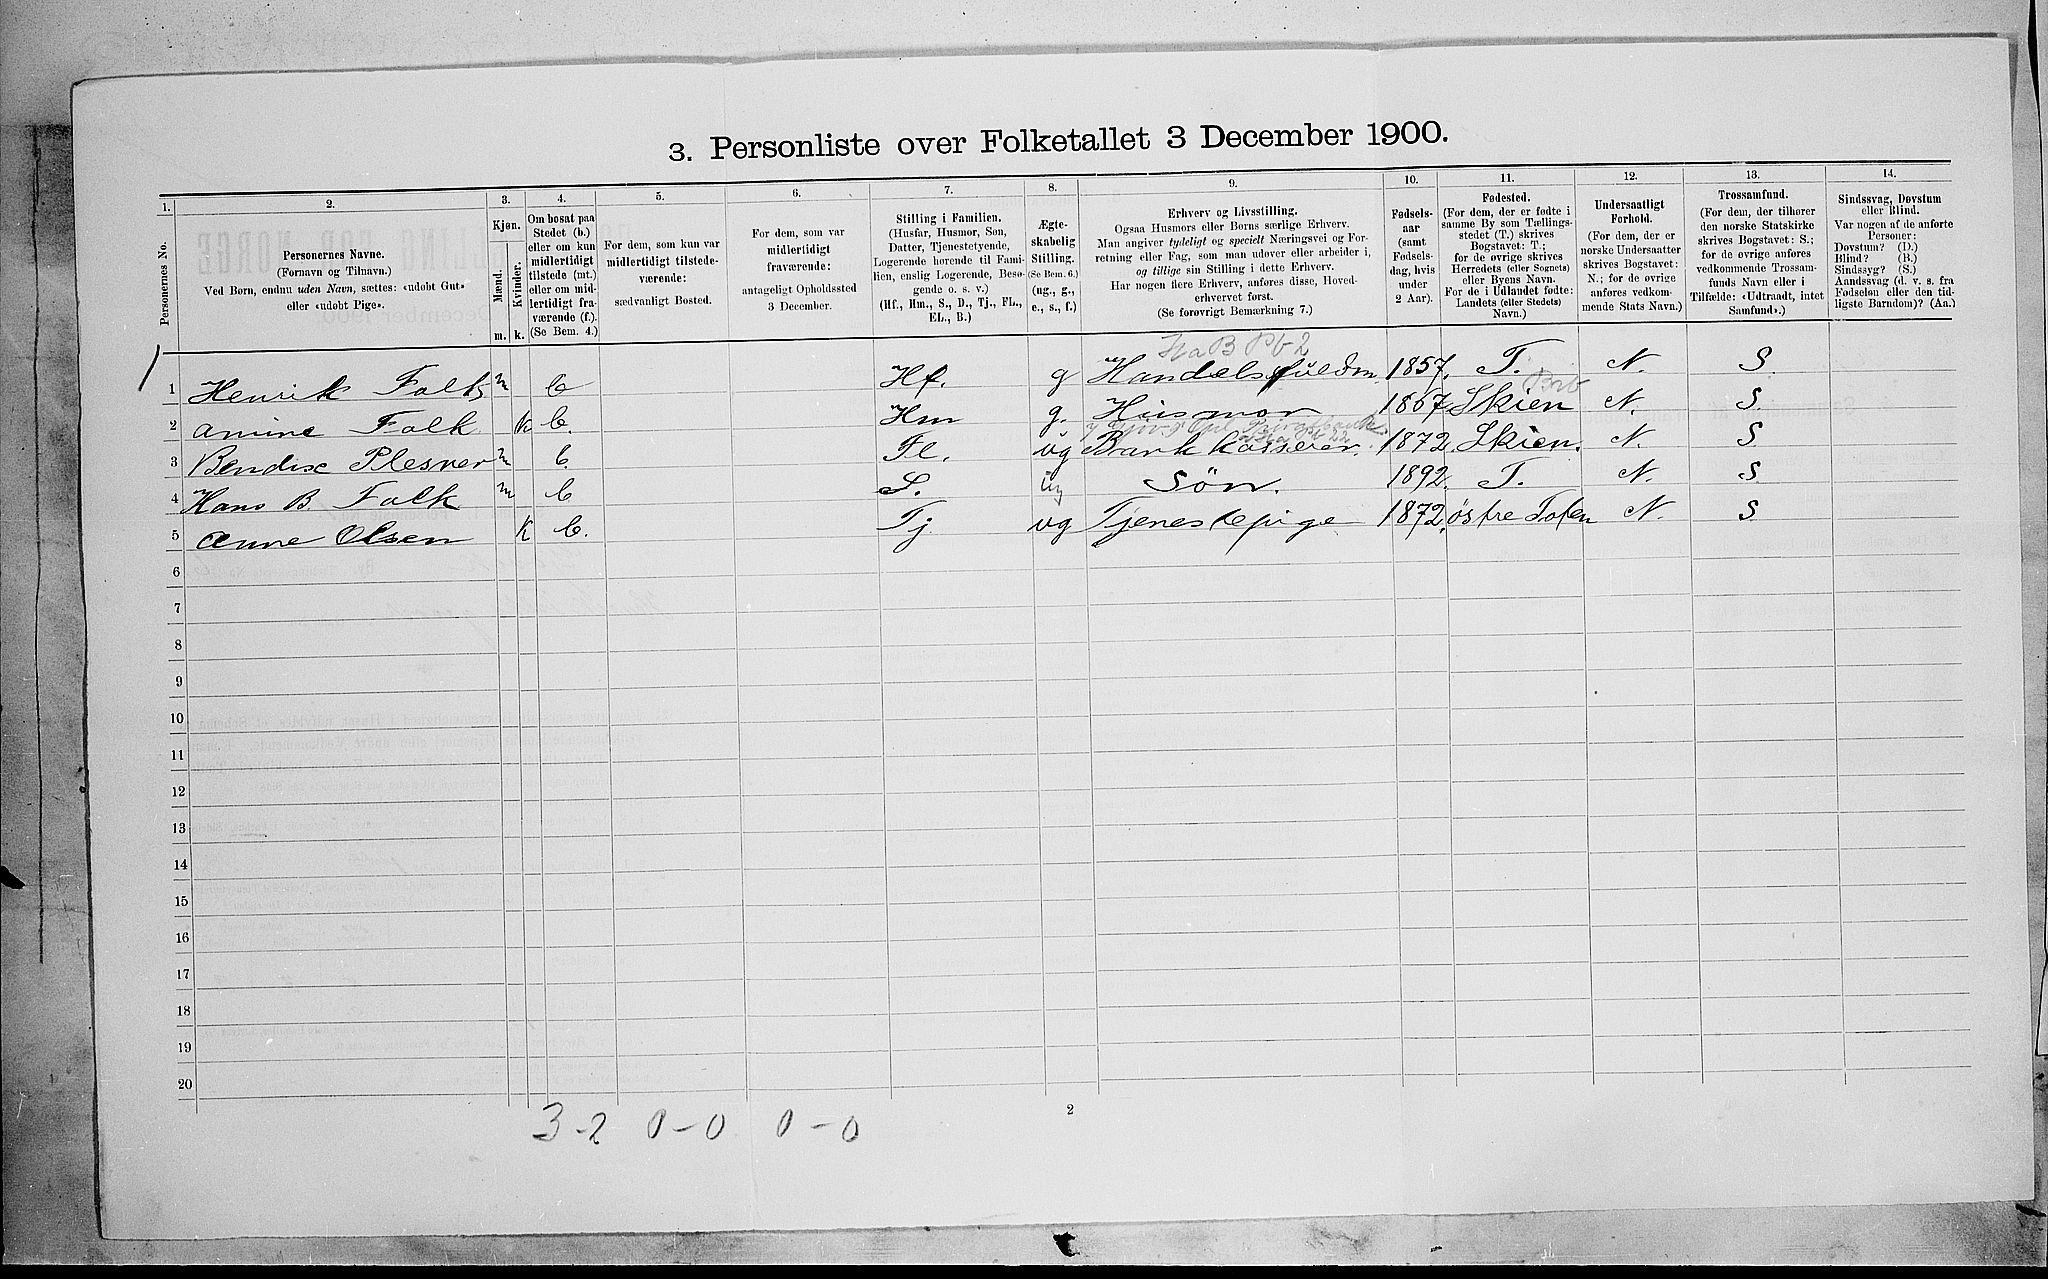 3. Personliste over Folketallet 3 December 1900.
1. 2. 3. 4. 5. 6. 7. 8. 9. 10. 11. 12. 13. 14.
Personernes No.
Personernes Navne.
(Fornavn og Tilnavn.)
Ved Børn, endnu uden Navn, sættes: «udøbt Gut»
eller «udøbt Pige».
Kjøn.
Mænd.
Kvinder.
m. k.
Om bosat paa
Stedet (b.)
eller om kun
midlertidigt
tilstede (mt.)
eller om mid-
lertidigt fra-
værende (f.).
(Se Bem. 4.)
For dem, som kun var
midlertidigt tilstede-
værende:
sædvanligt Bosted.
For dem, som var
midlertidigt
fraværende:
antageligt Opholdssted
3 December.
Stilling i Familien.
(Husfar, Husmor, Søn,
Datter, Tjenestetyende,
Logerende hørende til Fami-
lien, enslig Logerende, Besø-
gende o. s. v.)
(Hf., Hm., S., D., Tj., FL.,
EL., B.)
Ægte-
skabelig
Stilling.
(Se Bem. 6.)
(ug., g.,
e., s., f.)
Erhverv og Livsstilling.
Ogsaa Husmors eller Børns særlige Erhverv.
Man angiver tydeligt og specielt Næringsvei og For-
retning eller Fag, som man udøver eller arbeider i,
og tillige sin Stilling i dette Erhverv.
Har nogen flere Erhverv, anføres disse, Hoved-
erhvervet først.
(Se forøvrigt Bemærkning 7.)
Fødsels-
aar
(samt
Fødsels-
dag, hvis
under
2 Aar).
Fødested.
(For dem, der er fødte i
samme By som Tællings-
stedet (T.) skrives
Bogstavet: T.;
for de øvrige skrives
Herredets (eller Sognets)
eller Byens Navn.
For de i Udlandet fødte:
Landets (eller Stedets)
Navn.)
Undersaatligt
Forhold.
(For dem, der er
norske Undersaatter
skrives Bogstavet:
N.; for de øvrige
anføres vedkom-
mende Stats Navn.)
Trossamfund.
(For dem, der tilhører
den norske Statskirke
skrives Bogstavet: S.;
for de øvrige anføres
vedkommende Trossam-
funds Navn eller i
Tilfælde: «Udtraadt, intet
Samfund».)
Sindssvag, Døvstum
eller Blind.
Var nogen af de anførte
Personer:
Døvstum? (D.)
Blind? (B.)
Sindssyg? (S.)
Aandssvag (d. v. s. fra
Fødselen eller den tid-
ligste Barndom)? (Aa.)
HaB Pb 2
1 Henrik Falk m b Hf. g Handelsfuldm. 1857. T. N. S.
2 Amine Falk k b. Hm g. Husmor 1867 Skien N. S.
3 Bendix Plesner m b. Fl. ug Bank kasserer. 1872. Skien. N. S
4 Hans B. Falk m b S. ug Søn. 1892. T. N. S
5 Anne Olsen k b. Tj. ug Tjenestepige 1872. østre Toten N. S
6
7
8
9
10
11
12
13
14
15
16
17
18
19
20
2
3-2 0-0 0-0